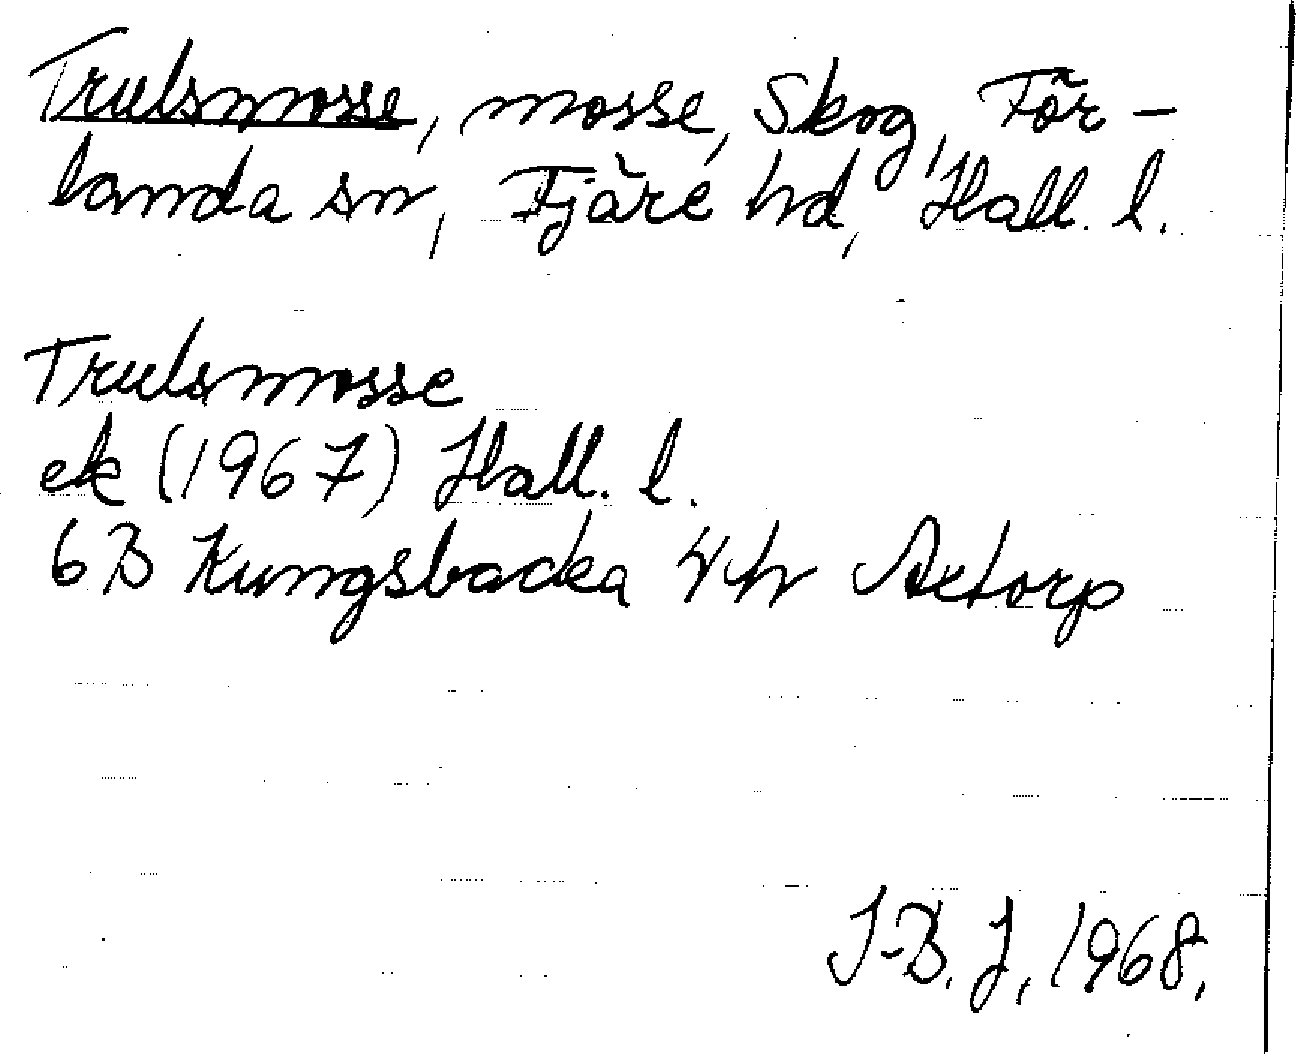 Trulsmosse, mosse, Skog, För-
landa sn, Fjäre hd, Hall. l.
Trulsmosse
ek (1967) Hall. l.
6B Kungsbacka 4h Axtorp
I-B. J, 1968,